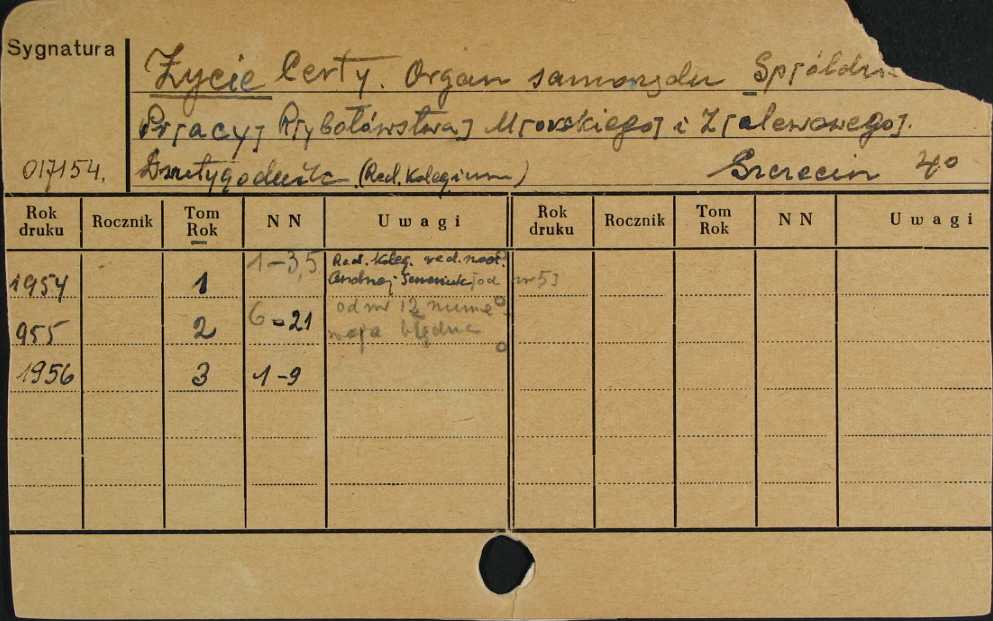 Sygnatura
Życie Certy. Organ samorządu Sp[ółdz
P[racy] R[ybołówstwa] M[orskiego] i Z[alewowego].
017154.
Dwutygodnik (Red. Kolegium) Szczecin 4°
Rok druku Rocznik Tom Rok NN Uwagi Rok druku Rocznik Tom Rok NN Uwagi
1954 1 1-3,5 Red. Koleg. red. nacz.
Andrzej [od nr 5]
955 2 6-21 od nr 12 nume-
racja błędna
1956 3 1-9